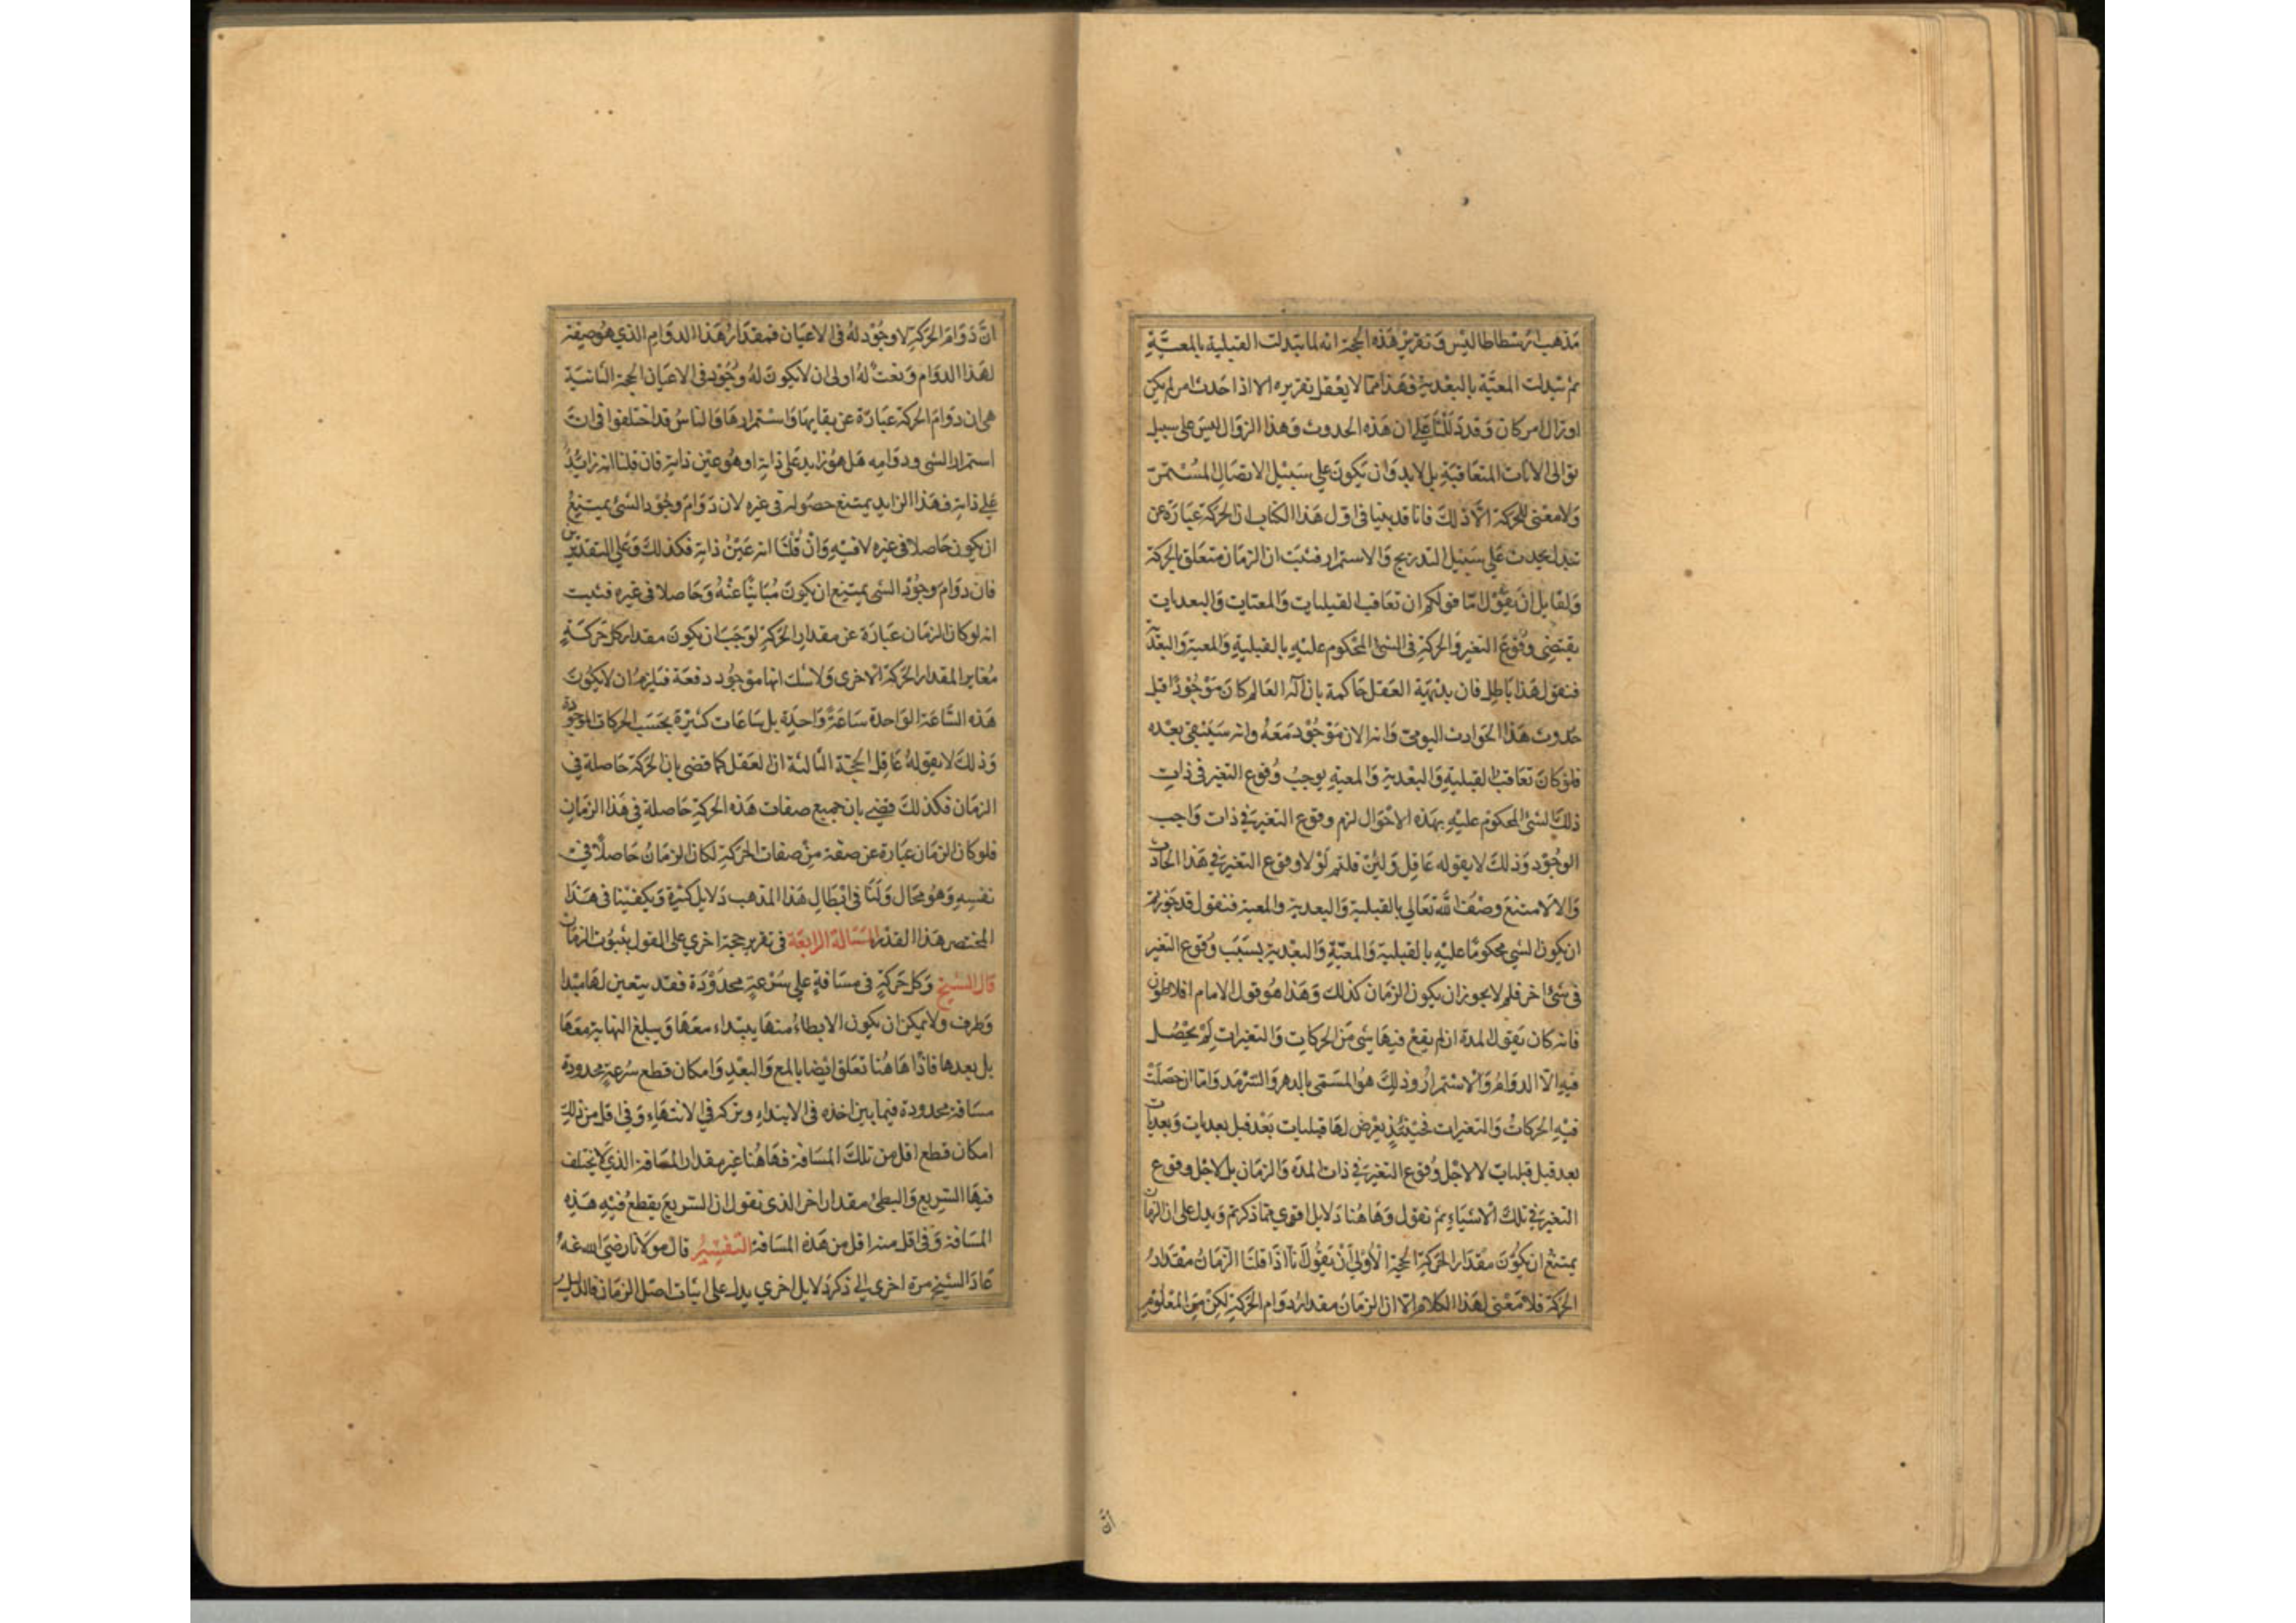 مذهب ارسطاطاليس وتقرير هذه الحجة انه لما تبدلت القبلية بالمعية
ثم تبدلت المعية بالبعدية فهذا مما لا يعقل تقريره الا اذا حدث امر لم يكن
او زال امر كان وقد دللنا على ان هذه الحدوث وهذا الزوال ليس على سبيل
توالى الانات المتعاقبة بل لا بد وان يكون على سبيل الاتصال المستمر
ولا معنى للحركة الا ذلك فانا قد بينا فى اول هذا الكتاب ان الحركة عبارة عن
تبدل يحدث على سبيل التدريج والاستمرار فثبت ان الزمان متعلق بالحركة
ولقايل ان يقول اما قولكم ان تعاقب القبليات والمعيات والبعديات
يقتضى وقوع التغير والحركة فى الشئ المحكوم عليه بالقبلية والمعية والبعدية
فنقول هذا باطل فان بديهة العقل حاكمة بان اله العالم كان موجودا قبل
حدوث هذا الحوادث اليومى وانه الان موجود معه وانه سيبقى بعده
فلو كان تعاقب القبلية والبعدية والمعية يوجب وقوع التغير فى ذات
ذلك الشئ المحكوم عليه بهذه الاحوال لزم وقوع التغير فى ذات واجب
الوجود وذلك لا يقوله عاقل ولئن قلتم لولا وقوع التغير فى هذا الحادث
والا لامتنع وصف الله تعالى بالقبلية والبعدية والمعية فنقول قد جوزتم
ان يكون الشي محكوما عليه بالقبلية والمعية والبعدية بسبب وقوع التغير
فى شئ اخر فلم لا يجوز ان يكون الزمان كذلك وهذا هو قول الامام افلاطون
فانه كان يقول المدة ان لم يقع فيها شى من الحركات والتغيرات لم يحصل
فيه الا الدوام والاستمرار وذلك هو المسمى بالدهر والسرمد واما ان حصلت
فيه الحركات والتغيرات فحينئذ يعرض لها قبليات بعد قبل بعديات وبعديات
بعد قبل قبليات لا لاجل وقوع التغير فى ذات المدة والزمان بل لاجل وقوع
التغير فى تلك الاشياء ثم نقول وهاهنا دلايل اقوى مما ذكرتم ويدل على ان الزمان
يمتنع ان يكون مقدار الحركة الحجة الاولى ان نقول انا اذا قلنا الزمان مقدار
الحركة فلا معنى لهذا الكلام الا ان الزمان مقدار دوام الحركة لكن من المعلوم
ان
ان دوام الحركة لا وجود له فى الاعيان فمقدار هذا الدوام الذي هو صفة
لهذا الدوام ونعت له اولى ان لا يكون له وجود فى الاعيان الحجة الثانية
هى ان دوام الحركة عبارة عن بقايها واستمرارها والناس قد اختلفوا فى ان
استمرار الشى ودوامه هل هو زايد على ذاته او هو عين ذاته فان قلنا انه زايد
على ذاته فهذا الزايد يمتنع حصوله فى غيره لان دوام وجود الشئ يمتنع
ان يكون حاصلا فى غيره لا فيه وان قلنا انه عين ذاته فكذلك وعلى التقديرين
فان دوام وجود الشى يمتنع ان يكون مباينا عنه وحاصلا فى غيره فثبت
انه لو كان الزمان عبارة عن مقدار الحركة لوجب ان يكون مقدار كل حركة
مغاير المقدار الحركة الاخرى ولا شك انها موجود دفعة فيلزم ان لا يكون
هذه الساعة الواحدة ساعة واحدة بل ساعات كثيرة بحسب الحركات الموجودة
وذلك لا يقوله عاقل الحجة الثالثة ان العقل كما قضى بان الحركة حاصلة في
الزمان فكذلك قضى بان جميع صفات هذه الحركة حاصلة فى هذا الزمان
فلو كان الزمان عبارة عن صفة من صفات الحركة لكان الزمان حاصلا في
نفسه وهو محال ولنا فى ابطال هذا المذهب دلايل كثيرة ويكفينا فى هذا
المختصر هذا القدر المسالة الرابعة فى تقرير حجة اخرى على القول بثبوت الزمان
قال الشيخ وكل حركة فى مسافة على سرعة محدودة فقد يتعين لها مبدا
وطرف ولا يمكن ان يكون الابطاء منها يبتداء معها ويبلغ النهاية معها
بل بعدها فاذا هاهنا تعلق ايضا بالمع والبعد وامكان قطع سرعة محدودة
مسافة محدودة فيما بين اخذه فى الابتداء وتركه في الانتهاء وفى اقل من ذلك
امكان قطع اقل من تلك المسافة فهاهنا غير مقدار المسافة الذي لا يختلف
فيها السريع والبطئ مقدار اخر الذى نقول ان السريع يقطع فيه هذه
المسافة وفى اقل منه اقل من هذه المسافة التفسير قال مولانا رضى الله عنه
عاد الشيخ مرة اخرى الى ذكر دلايل اخرى يدل على اثبات اصل الزمان فالدليل